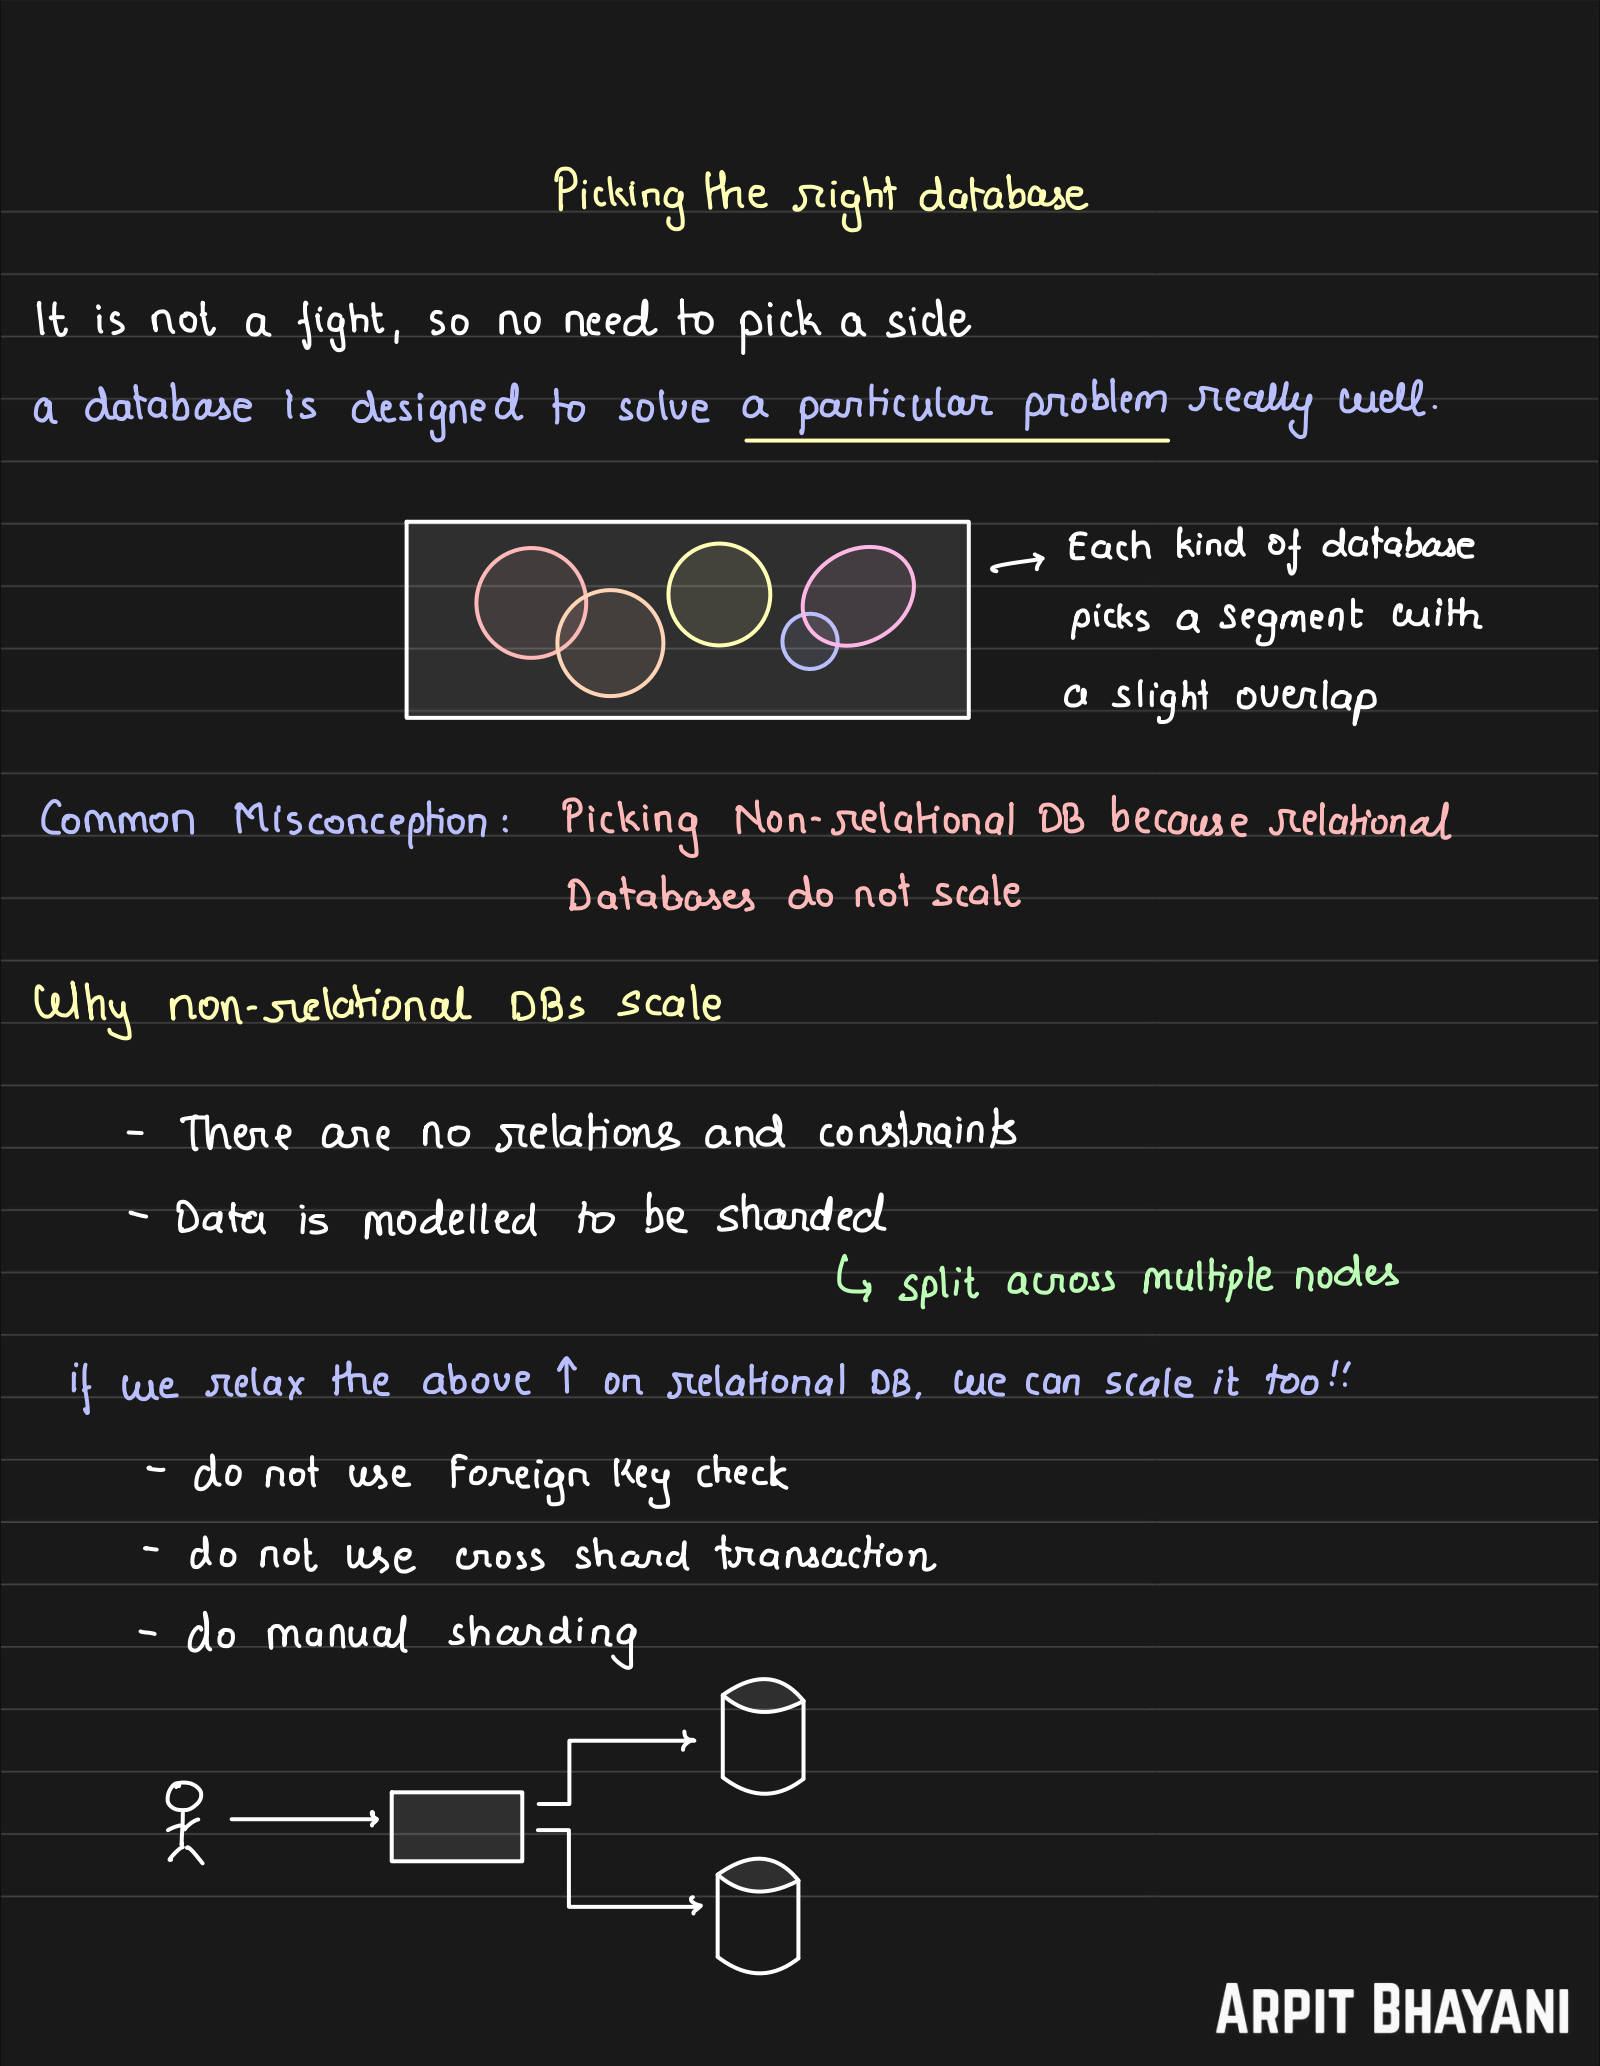 Picking the right database
It is not a fight, so no need to pick a side
a database is designed to solve a particular problem really well.
→ Each kind of database
picks a segment with
a slight overlap
Common Misconception: Picking Non-relational DB because relational
Databases do not scale
Why non-relational DBs scale
- There are no relations and constraints
- Data is modelled to be sharded
↳ split across multiple nodes
if we relax the above ↑ on relational DB, we can scale it too!!
- do not use Foreign Key check
- do not use cross shard transaction
- do manual sharding
ARPIT BHAYANI